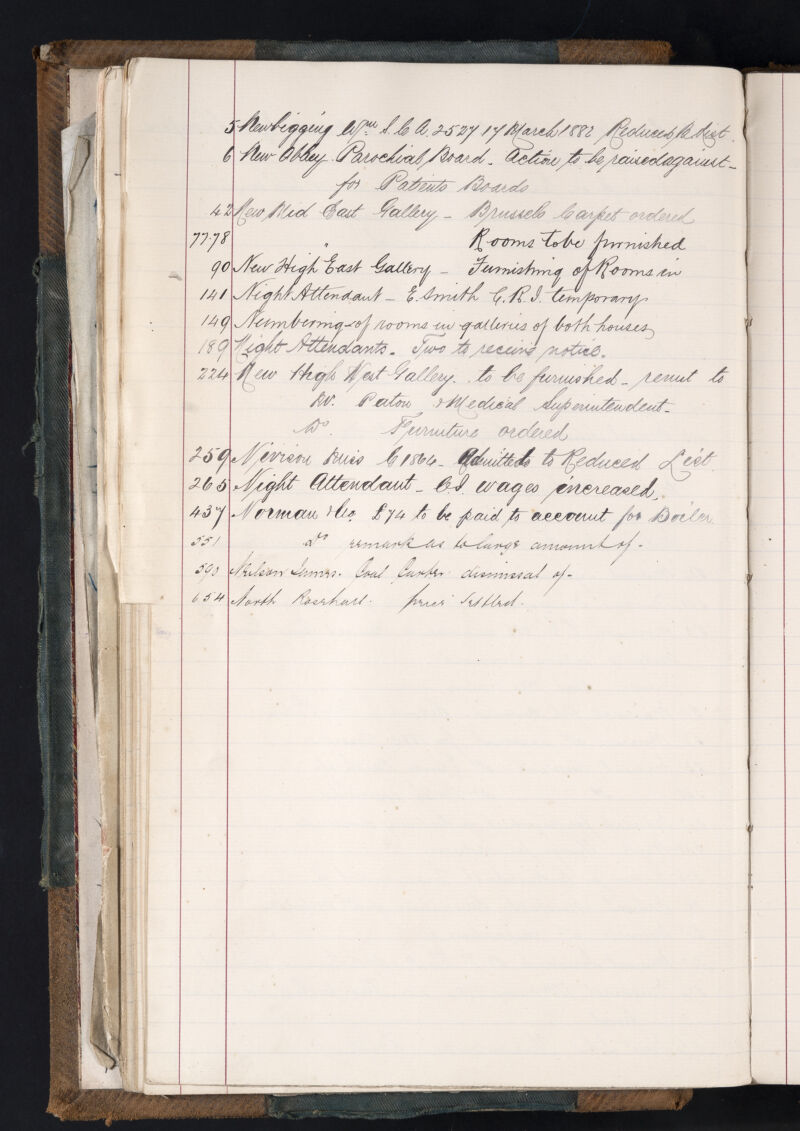 5 Newbigging Wm S. C. A. 2527 17 March 1882 Reduced R. List.
6 New Abbey Parochial Board. Action to be raised against -
for Patients Boards
42 New Mid East Gallery - Brussels Carpet ordered
77.78 " Rooms to be furnished
90 New High East Gallery - Furnishing of Rooms in
141 Night Attendant - E. Smith C. R. I. temporary
149 Numbering of rooms in galleries of both houses
189 Night Attendants. Two to receive notice.
224 New High West Gallery. to be furnished - remit to
Dr. Paton & Medical Superintendent -
Do. Furniture ordered
259 Nivison Miss C 1864 - Admitted to Reduced List
265 Night Attendant - C.I. wages increased.
437 Norman & Co. £74 to be paid to account for Boiler
551 Do remark as to large amount of -
590 Neilson James. Coal Carter dismissal of -
654 North Rosehall. price settled.